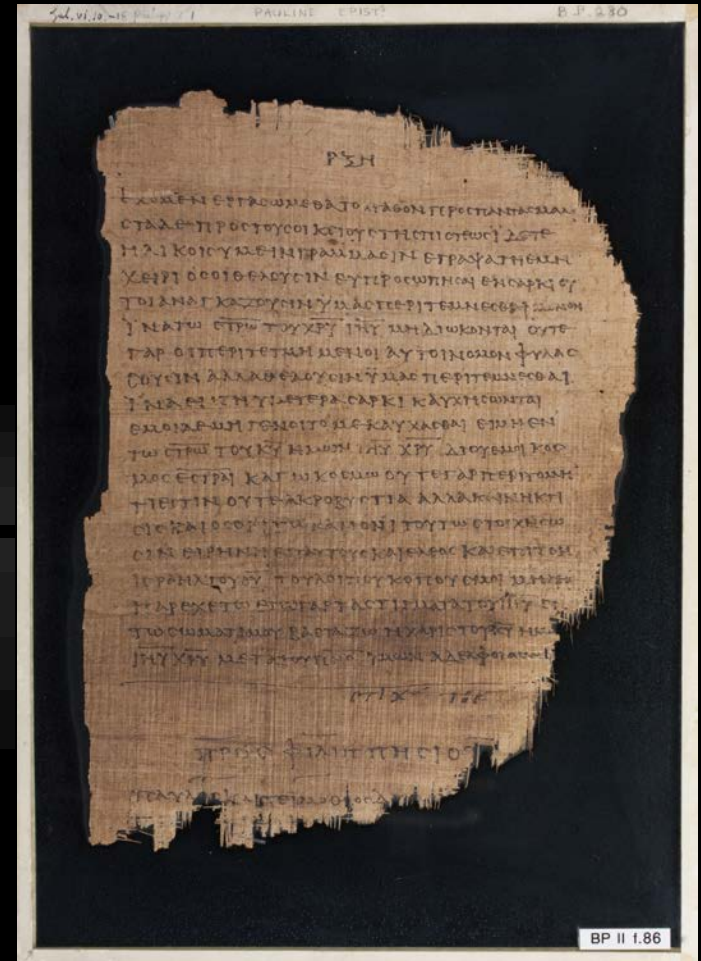 PAULINE EPIST. B.P. 280
ΡΞΗ
ΕΧΟΜΕΝ ΕΡΓΑϹΩΜΕΘΑ ΤΟ ΑΓΑΘΟΝ ΠΡΟϹ ΠΑΝΤΑϹ ΜΑΛΙ
ϹΤΑ ΔΕ ΠΡΟϹ ΤΟΥϹ ΟΙΚΕΙΟΥϹ ΤΗϹ ΠΙϹΤΕΩϹ ΙΔΕΤΕ
ΗΛΙΚΟΙϹ ΥΜΕΙΝ ΓΡΑΜΜΑϹΙΝ ΕΓΡΑΨΑ ΤΗ ΕΜΗ
ΧΕΙΡΙ ΟϹΟΙ ΘΕΛΟΥϹΙΝ ΕΥΠΡΟϹΩΠΗϹΑΙ ΕΝ ϹΑΡΚΙ ΟΥ
ΤΟΙ ΑΝΑΓΚΑΖΟΥϹΙΝ ΥΜΑϹ ΠΕΡΙΤΕΜΝΕϹΘΑΙ ΜΟΝΟΝ
ΪΝΑ ΤΩ Ϲ̅Τ̅Ρ̅Ω̅ ΤΟΥ Χ̅Ρ̅Υ̅ Ι̅Η̅Υ̅ ΜΗ ΔΙΩΚΟΝΤΑΙ ΟΥΤΕ
ΓΑΡ ΟΙ ΠΕΡΙΤΕΤΜΗΜΕΝΟΙ ΑΥΤΟΙ ΝΟΜΟΝ ΦΥΛΑϹ
ϹΟΥϹΙΝ ΑΛΛΑ ΘΕΛΟΥϹΙΝ ΥΜΑϹ ΠΕΡΙΤΕΜΝΕϹΘΑΙ
ΪΝΑ ΕΝ ΤΗ ΥΜΕΤΕΡΑ ϹΑΡΚΙ ΚΑΥΧΗϹΩΝΤΑΙ
ΕΜΟΙ ΔΕ ΜΗ ΓΕΝΟΙΤΟ ΜΕ ΚΑΥΧΑϹΘΑΙ ΕΙ ΜΗ ΕΝ
ΤΩ Ϲ̅Τ̅Ρ̅Ω̅ ΤΟΥ Κ̅Υ̅ ΗΜΩΝ Ι̅Η̅Υ̅ Χ̅Ρ̅Υ̅ ΔΙ ΟΥ ΕΜΟΙ ΚΟϹ
ΜΟϹ Ε̅Ϲ̅Τ̅Ρ̅Α̅Ι̅ ΚΑΓΩ ΚΟϹΜΩ ΟΥΤΕ ΓΑΡ ΠΕΡΙΤΟΜΗ
ΤΙ ΕϹΤΙΝ ΟΥΤΕ ΑΚΡΟΒΥϹΤΙΑ ΑΛΛΑ ΚΑΙΝΗ ΚΤΙ
ϹΙϹ ΚΑΙ ΟϹΟΙ ΤΩ ΚΑΝΟΝΙ ΤΟΥΤΩ ϹΤΟΙΧΗϹΩ
ϹΙΝ ΕΙΡΗΝΗ ΕΠ ΑΥΤΟΥϹ ΚΑΙ ΕΛΕΟϹ ΚΑΙ ΕΠΙ ΤΟΝ
ΙϹΡΑΗΛ ΤΟΥ Θ̅Υ̅ ΤΟΥ ΛΟΙΠΟΥ ΚΟΠΟΥϹ ΜΟΙ
ΠΑΡΕΧΕΤΩ ΕΓΩ ΓΑΡ ΤΑ ϹΤΙΓΜΑΤΑ ΤΟΥ Ι̅Η̅Υ̅ ΕΝ
ΤΩ ϹΩΜΑΤΙ ΜΟΥ ΒΑϹΤΑΖΩ Η ΧΑΡΙϹ ΤΟΥ Κ̅Υ̅ ΗΜ
Ι̅Η̅Υ̅ Χ̅Ρ̅Υ̅ ΜΕΤΑ ΤΟΥ ΥΜΩΝ ΑΔΕΛΦΟΙ
ϹΤΙΧ
ΠΡΟϹ ΦΙΛΙΠΠΗϹΙΟΥϹ
ΠΑΥΛΟϹ ΚΑΙ ΤΕΙΜΟΘΕΟϹ
BP II f.86